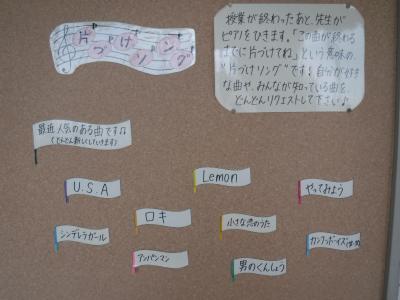 片づけソング
授業が終わったあと、先生が
ピアノをひきます。「この曲が終わる
までに片づけてね」という意味の、
"片づけソング"です!自分が好き
な曲や、みんなが知っている曲を
どんどんリクエストして下さい♪
最近人気のある曲です♫
(どんどん新しくしていきます)
U.S.A
Lemon
やってみよう
ロキ
小さな恋のうた
シンデレラガール
カンフーボーイズ
アンパンマン
男のくんしょう